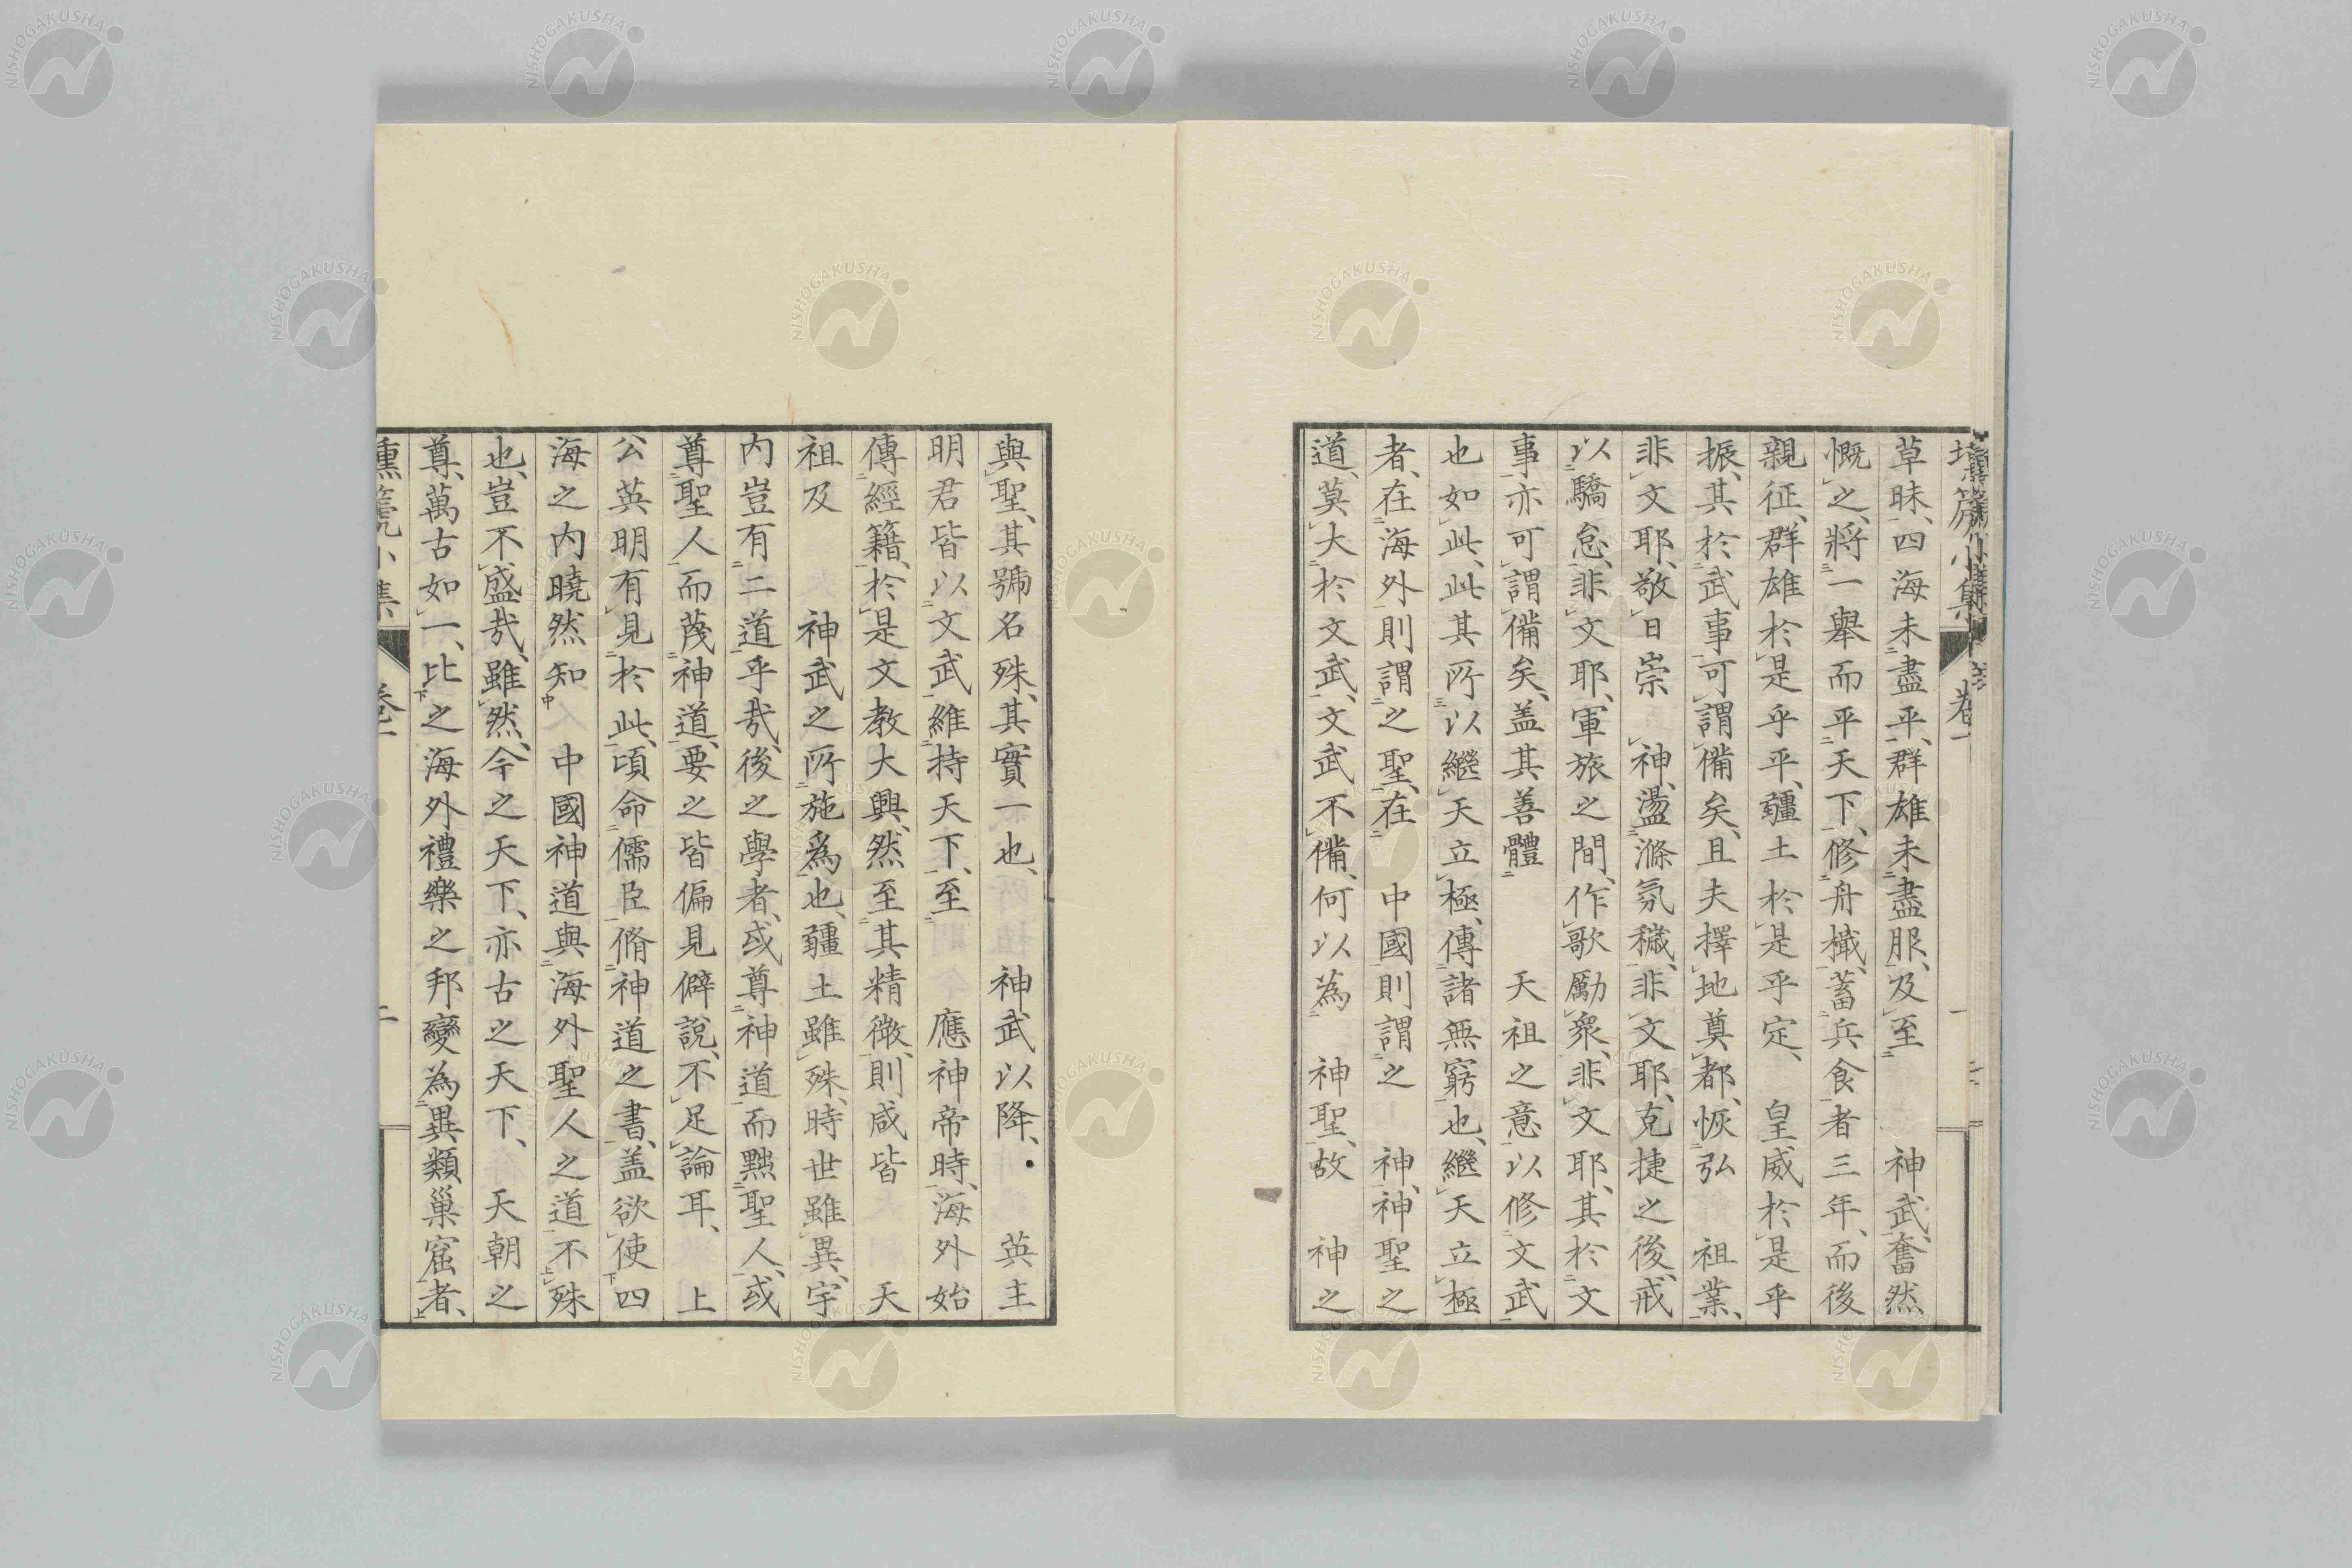 壎篪小集 卷一 一
草昧、四海未盡平、群雄未盡服、及至 神武、奮然
慨之、將一舉而平天下、修舟檝、蓄兵食者三年、而後
親征、群雄於是乎平、疆土於是乎定、 皇威於是乎
振、其於武事可謂備矣、且夫擇地奠都、恢弘 祖業、
非文耶、敬日崇 神、盪滌氛穢、非文耶、克捷之後、戒
以驕怠、非文耶、軍旅之間、作歌勵衆、非文耶、其於文
事亦可謂備矣、盖其善體 天祖之意以修文武
也如此、此其所以繼天立極、傳諸無窮也、繼天立極
者、在海外則謂之聖、在 中國則謂之 神、神聖之
道、莫大於文武、文武不備、何以為 神聖、故 神之
與聖、其號名殊、其實一也、 神武以降、 英主
明君皆以文武維持天下、至 應神帝時、海外始
傳經籍、於是文教大興、然至其精微、則咸皆 天
祖及 神武之所施為也、疆土雖殊、時世雖異、宇
内豈有二道乎哉、後之學者、或尊神道而黜聖人、或
尊聖人而蔑神道、要之皆偏見僻說、不足論耳、 上
公英明有見於此、頃命儒臣脩神道之書、盖欲使四
海之内曉然知 中國神道與海外聖人之道不殊
也、豈不盛哉、雖然、今之天下、亦古之天下、 天朝之
尊、萬古如一、比之海外禮樂之邦變為異類巢窟者、
壎篪小集 卷一 二
NISHOGAKUSHA